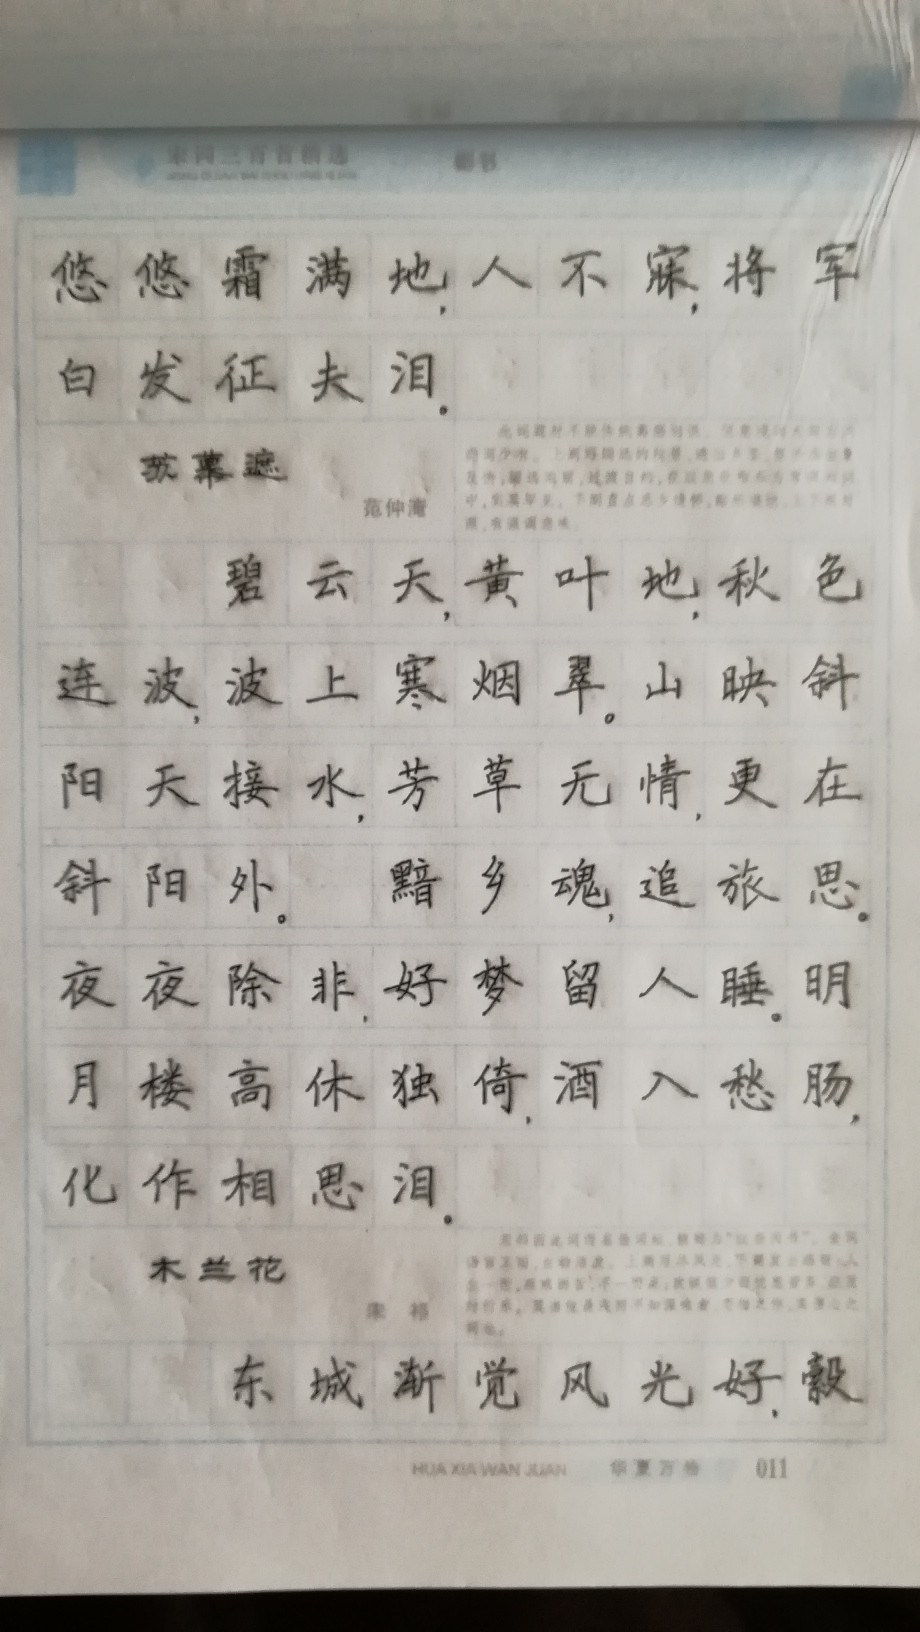 宋词三百首精选
楷书
悠悠霜满地,人不寐,将军
白发征夫泪。
苏幕遮
范仲淹
碧云天,黄叶地,秋色
连波,波上寒烟翠。山映斜
阳天接水,芳草无情,更在
斜阳外。 黯乡魂,追旅思。
夜夜除非,好梦留人睡。明
月楼高休独倚,酒入愁肠,
化作相思泪。
木兰花
宋 祁
东城渐觉风光好,縠
HUA XIA WAN JUAN 华夏万卷 011